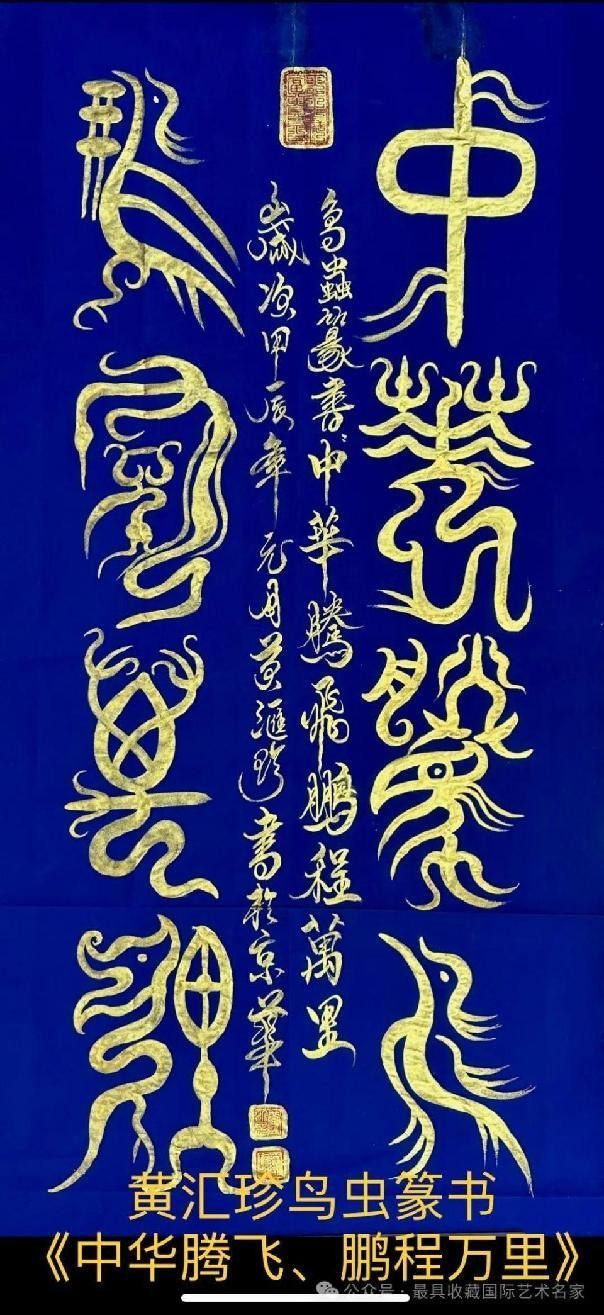 中華騰飛
鵬程萬里
鳥蟲篆書中華騰飛鵬程萬里
歲次甲辰年元月黃滙珍書於京華
黄汇珍鸟虫篆书
《中华腾飞、鹏程万里》
公众号·最具收藏国际艺术名家